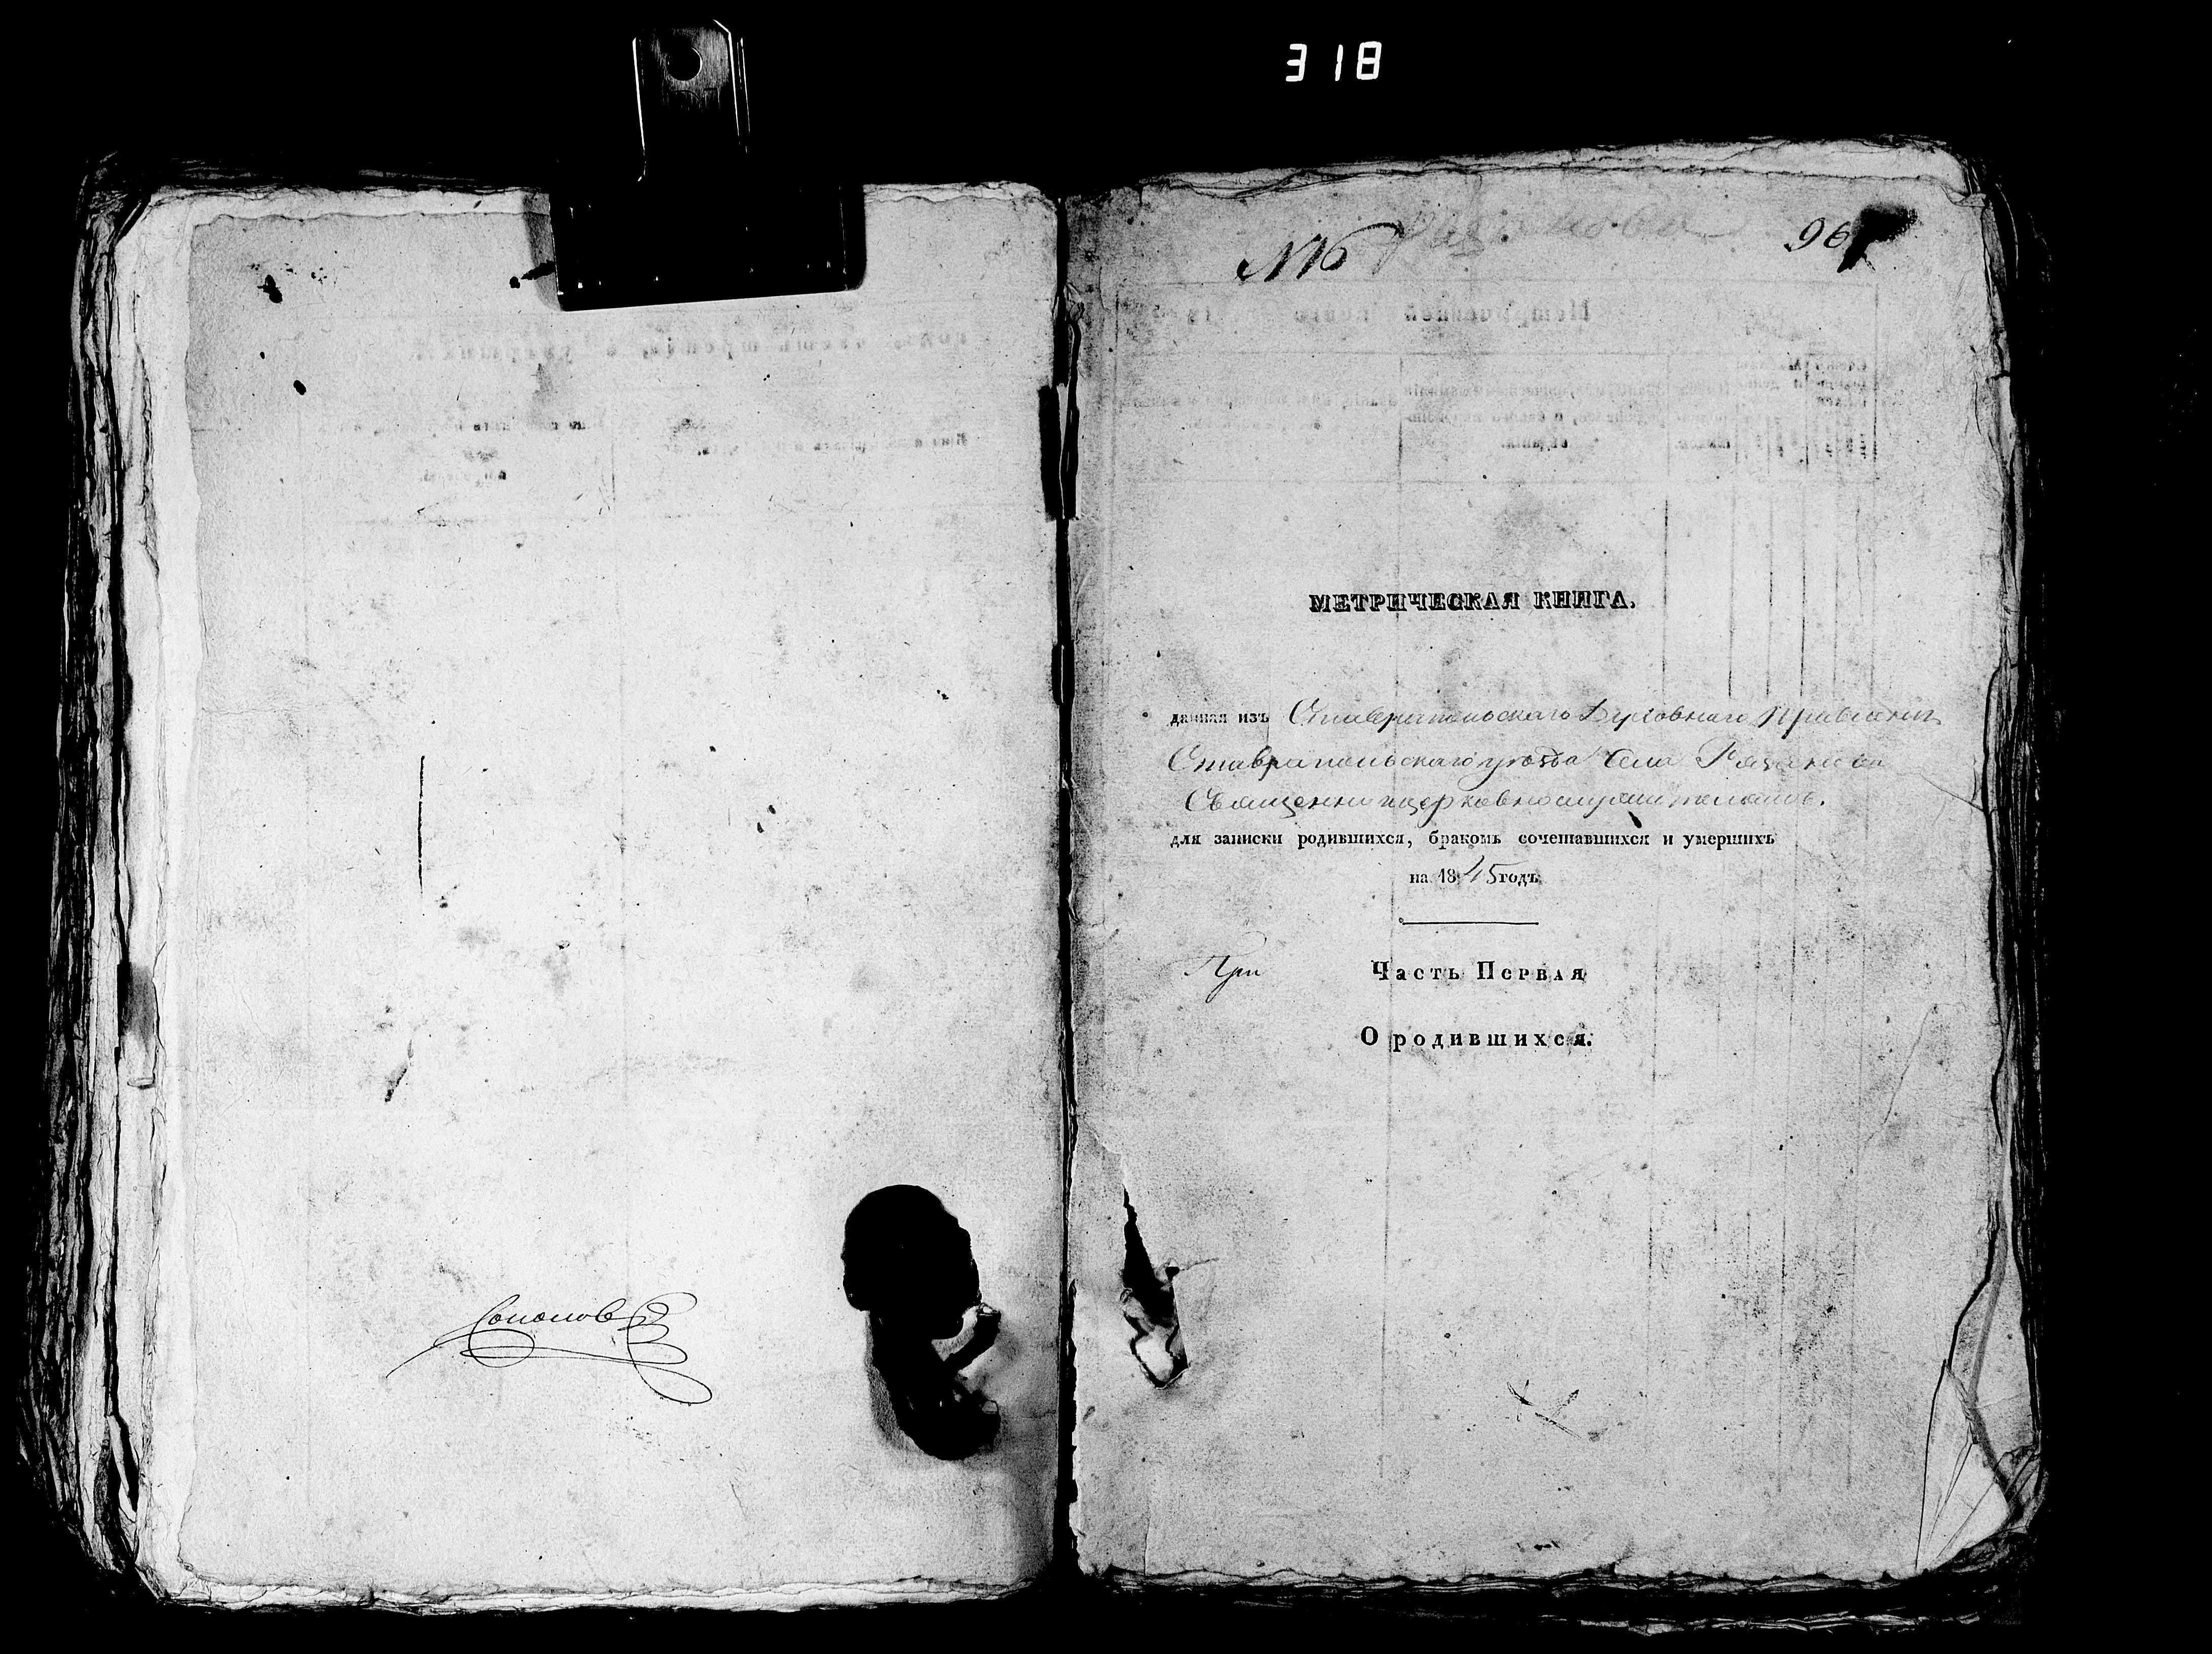 318
961
Соколовъ
МЕТРИЧЕСКАЯ КНИГА.
данная изъ Ставропольскаго Духовнаго Правленія
Ставропольскаго уѣзда Села Рязанова
Священноицерковнослужителямъ.
для записки родившихся, бракомъ сочетавшихся и умершихъ
на 1845 годъ
При
Часть Первая
О родившихся.